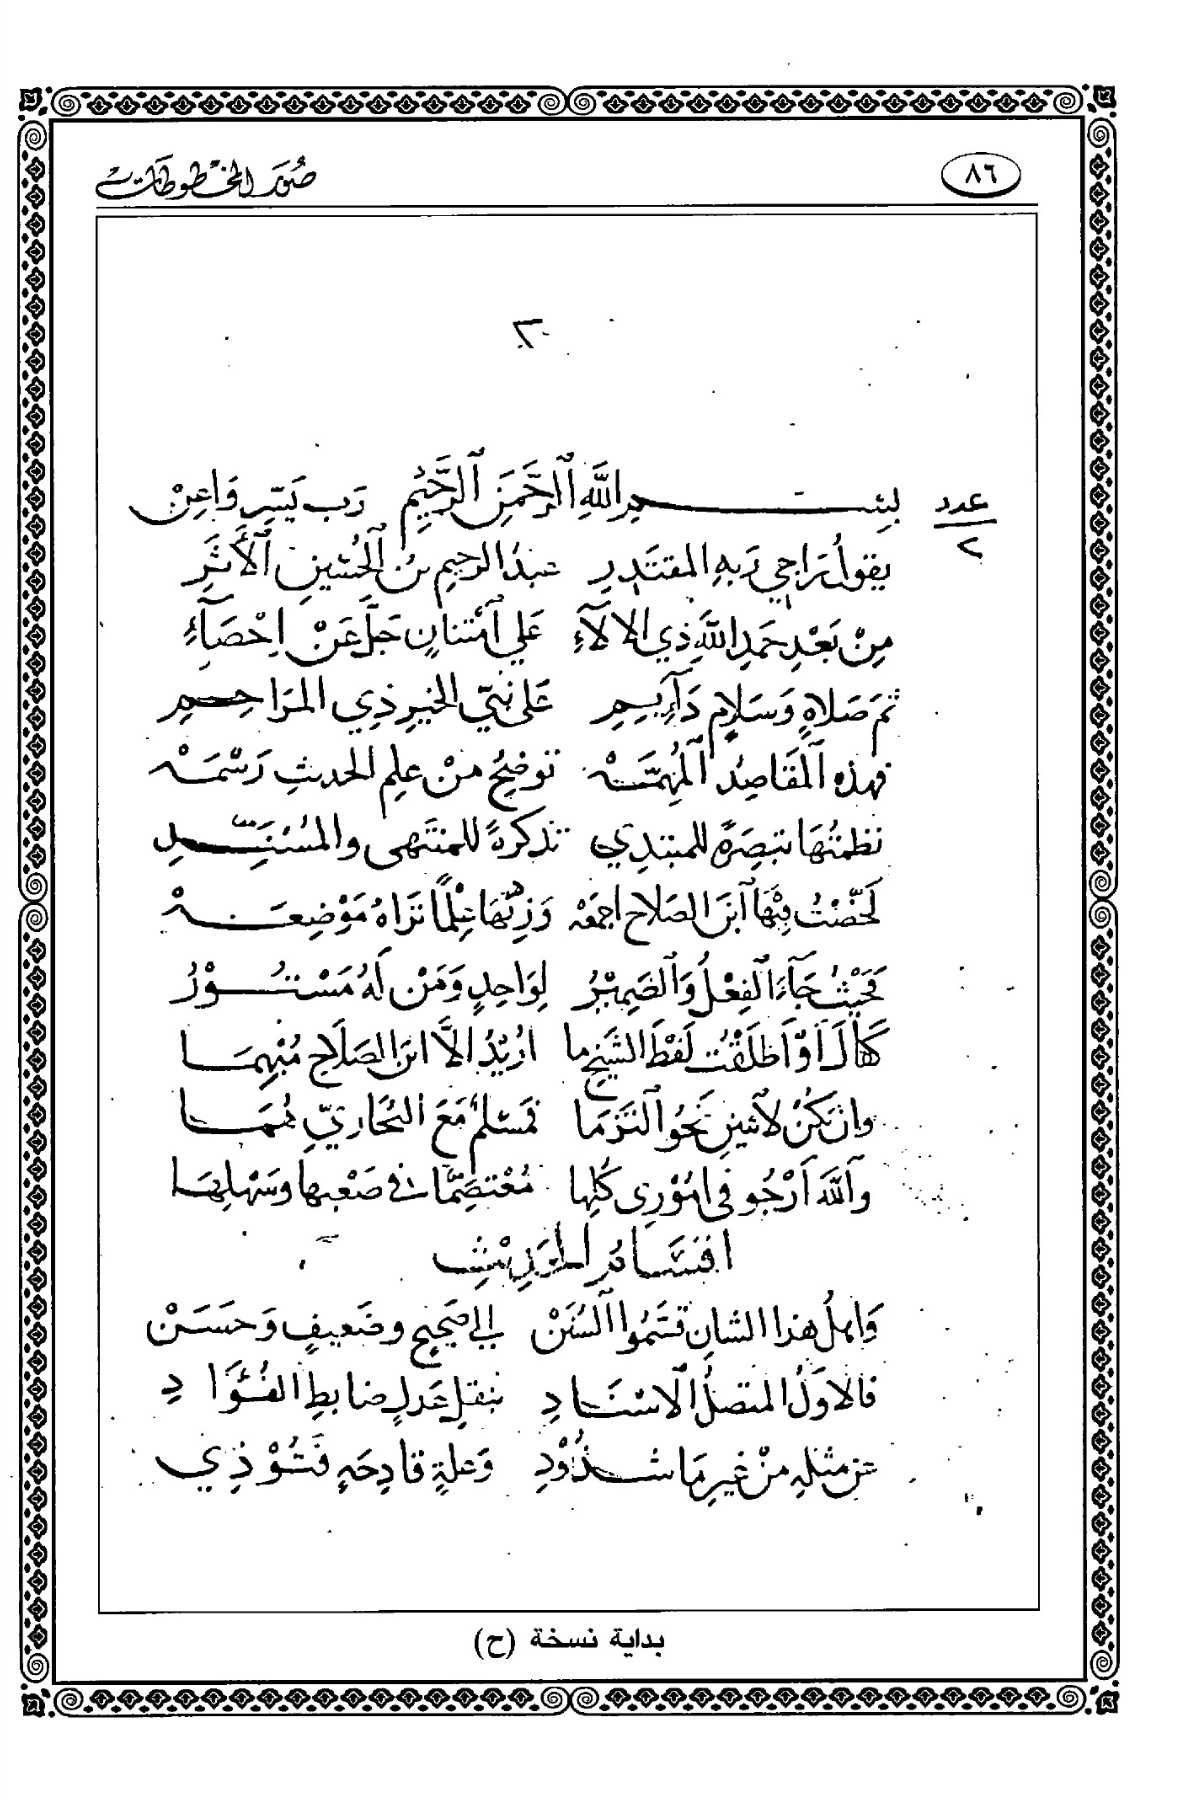 ٨٦
صور المخطوطات
٢
عدد
٢
بِسْمِ اللَّهِ الرَّحْمَنِ الرَّحِيْمِ رَب يَسِّرِ وَاعِنْ
يقولُ رَاجِي رَبهِ المقتَدِرِ عبدُ الرحيمِ بنُ الحُسَينِ الْأَثَرِي
مِنْ بَعْدِ حَمدِ اللَّهِ ذي الالَآءِ عَلي امْتنانٍ جَلَّ عَنْ اِحْصَآءِ
ثمَ صَلاةٍ وَسَلاٍم دَآيِمِ عَلى نَبيّ الخيرِ ذِي المرَاحِمِ
فهذه الْمَقَاصِدُ الْمُهِمَّهْ توضِحُ مِنْ عِلمِ الحديثِ رَسْمَهْ
نظمتُهَا تبصِرَةً للمبتدِي تذكرةً للمنتَهى والمُسْنِدِ
لَخَّصْتُ فِيْهَا ابْنَ الصَلاحِ اجمَعَهْ وَزِدْتُهَا عِلْمًا تَرَاهُ مَوْضِعَهْ
فَحَيْثُ جَآءَ الْفِعْلُ وَالْضَمِيْرُ لِوَاحِدٍ وَمَنْ لَهُ مَسْتُوْرُ
كَقَالَ اَوْ اَطْلَقْتُ لَفْظَ الشَيْخِ ما اُرِيْدُ الاَّ ابنَ الصَلَاحِ مُبْهِمَا
وان تَكُنْ لاثنينِ نَحْوُ الْتَزَمَا فمُسْلمٌ مَعَ البُخَارِيِّ هُمَا
وَاللَّهَ اَرْجُو في اُمُوْرِي كُلِها مُعْتصِمًا في صَعْبها وسَهْلِهَا
اقْسَامُ الحَدِيْثِ
وَاهلُ هذا الشانِ قَسَمُوا السُنَنْ الي صَحِيحٍ وضَعِيفٍ وَحَسَنْ
فالاوَلُ المتصلُ الْاسْنَادِ بنقلِ عَدلٍ ضابطِ الفُؤَادِ
عن مثلِهِ مِنْ غيرِ مَا شُذُوْذِ وَعلةٍ قادِحَةٍ فَتُوْذِي
بداية نسخة (ح)